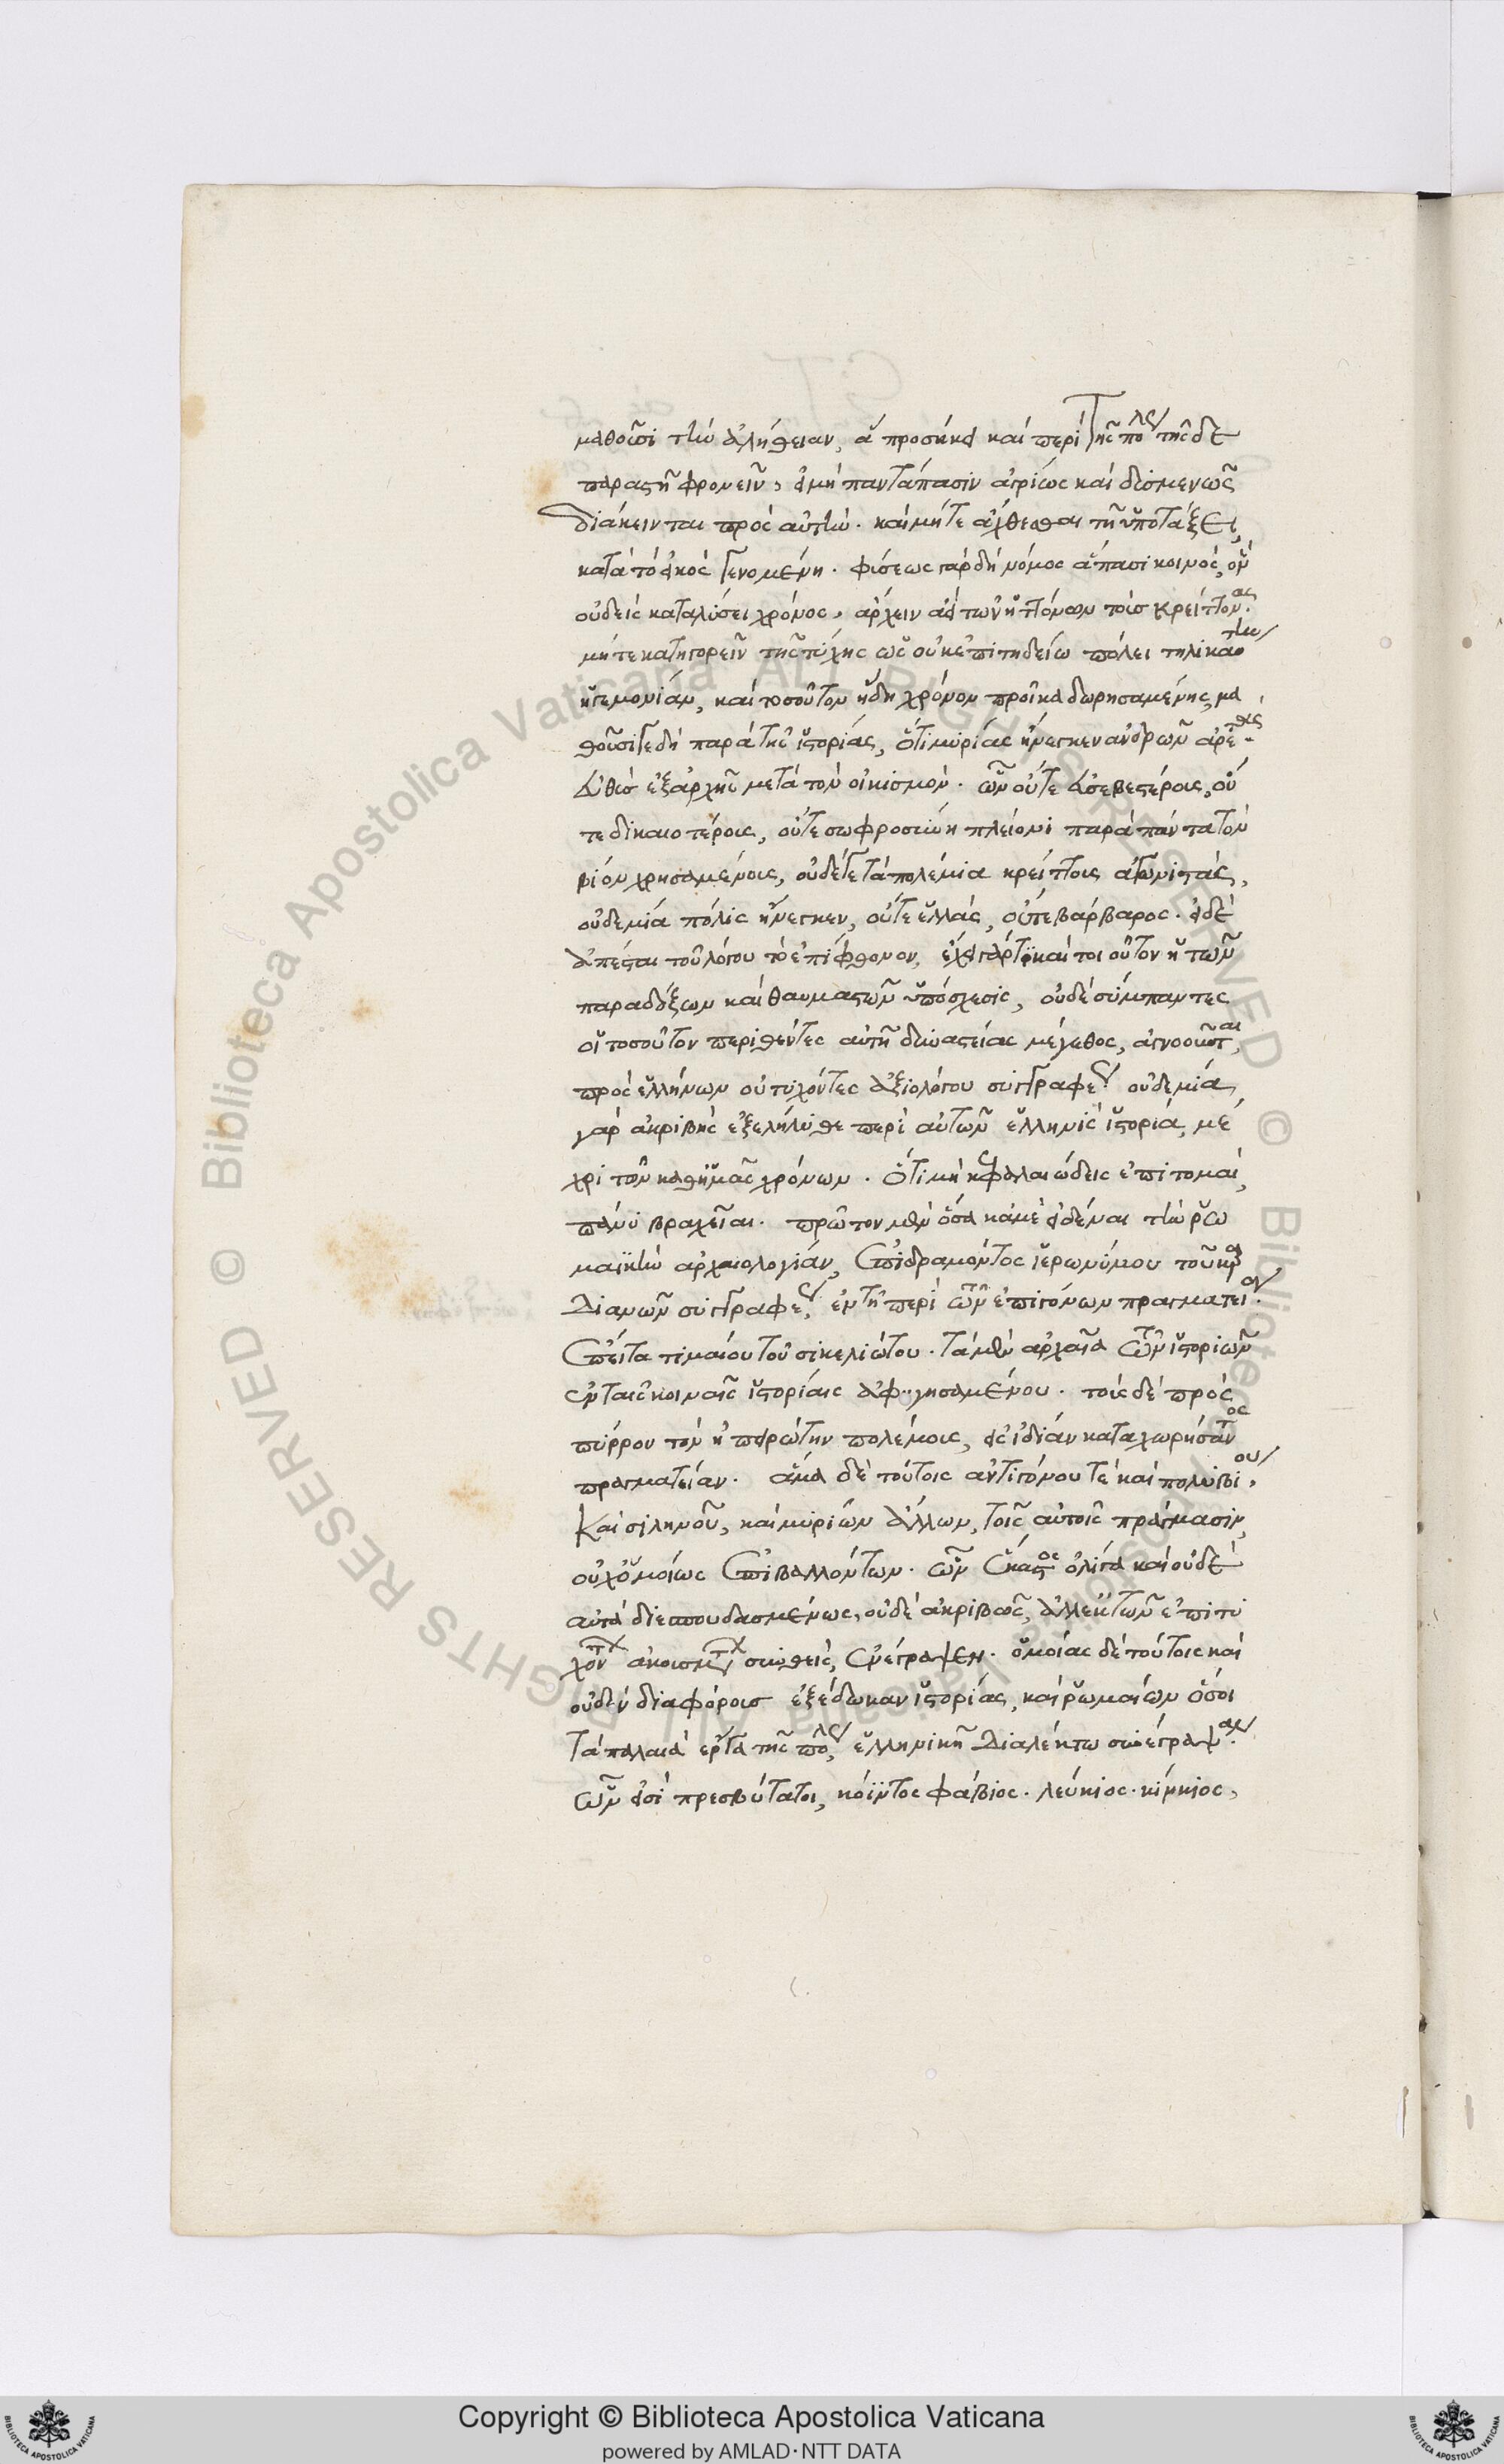 μαθοῦσι τὴν ἀλήθειαν, ἃ προσήκει καὶ περὶ τῆς πόλεως τῆσδε
παραστῆ φρονεῖν, εἰ μὴ παντάπασιν ἀγρίως καὶ δυσμενῶς
διάκεινται πρὸς αὐτὴν. καὶ μήτε ἄχθεσθαι τῆ ὑποτάξει
κατὰ τὸ εἰκὸς γενομένη. φύσεως γὰρ δὴ νόμος ἅπασι κοινός, ὃν
οὐδεὶς καταλύσει χρόνος, ἄρχειν ἀεὶ τῶν ἡττόνων τοὺς κρείττονας.
μήτε κατηγορεῖν τῆς τύχης ὡς οὐκ ἐπιτηδείω πόλει τηλικαύτην
ἡγεμονίαν, καὶ τοσοῦτον ἤδη χρόνον προῖκα δωρησαμένης, μα
θοῦσί γε δὴ παρὰ τῆς ἱστορίας, ὅτι μυρίας ἤνεγκεν ἀνδρῶν ἀρετὰς
εὐθὺς ἐξ ἀρχῆς μετὰ τὸν οἰκισμόν. ὧν οὔτε εὐσεβεστέρους, οὔ
τε δικαιοτέρους, οὔτε σωφροσύνη πλείονι παρὰ πάντα τὸν
βίον χρησαμένους, οὐδέ γε τὰ πολέμια κρείττους ἀγωνιστάς,
οὐδεμία πόλις ἤνεγκεν, οὔτε ἑλλάς, οὔτε βάρβαρος. εἰ δὲ
ἀπέσται τοῦ λόγου τὸ ἐπίφθονον, ἔχει γάρ τι καὶ τοιοῦτον ἡ τῶν
παραδόξων καὶ θαυμαστῶν ὑπόσχεσις, οὐδὲ σύμπαντες
οἱ τοσοῦτον περιθέντες αὐτῆ δυναστείας μέγεθος, ἀγνοοῦνται
πρὸς ἑλλήνων οὐ τυχόντες ἀξιολόγου συγγραφέως οὐδεμία
γὰρ ἀκριβὴς ἐξελήλυθε περὶ αὐτῶν ἑλληνὶς ἱστορία, μέ
χρι τῶν καθ ἡμᾶς χρόνων. ὅτι μὴ κεφαλαιώδεις ἐπιτομαί,
πάνυ βραχεῖαι. πρῶτον μὲν ὅσα κἀμὲ εἰδέναι τὴν ῥω
μαϊκὴν ἀρχαιολογίαν, ἐπιδραμόντος ἱερωνύμου τοῦ καρ
διανοῦ συγγραφέως, ἐν τῆ περὶ τῶν ἐπιγόνων πραγματείαν.
ἔπειτα τιμαίου τοῦ σικελιώτου. τὰ μὲν ἀρχαῖα τῶν ἱστοριῶν
ἐν ταῖς κοιναῖς ἱστορίαις ἀφηγησαμένου. τοὺς δὲ πρὸς
πύρρον τὸν ἠπειρώτην πολέμους, εἰς ἰδίαν καταχωρήσαντος
πραγματείαν. ἅμα δὲ τούτοις ἀντιγόνου τὲ καὶ πολυβίου,
καὶ σιληνοῦ, καὶ μυρίων ἄλλων, τοῖς αὐτοῖς πράγμασιν
οὐχ ὁμοίως ἐπιβαλλόντων. ὧν ἕκαστος ὀλίγα καὶ οὐδὲ
αὐτὰ διεσπουδασμένως, οὐδὲ ἀκριβῶς, ἀλλ ἐκ τῶν ἐπιτυ
χόντων ἀκουσμάτων συνθεὶς, ἀνέγραψεν. ὁμοίας δὲ τούτοις καὶ
οὐδὲν διαφόρους ἐξέδωκαν ἱστορίας, καὶ ῥωμαίων ὅσοι
τὰ παλαιὰ ἔργα τῆς πόλεως, ἑλληνικῆ διαλέκτω συνέγραψαν.
ὧν εἰσὶ πρεσβύτατοι, κόϊντος φάβιος. λεύκιος. κίγκιος,
Copyright © Biblioteca Apostolica Vaticana
powered by AMLAD·NTT DATA